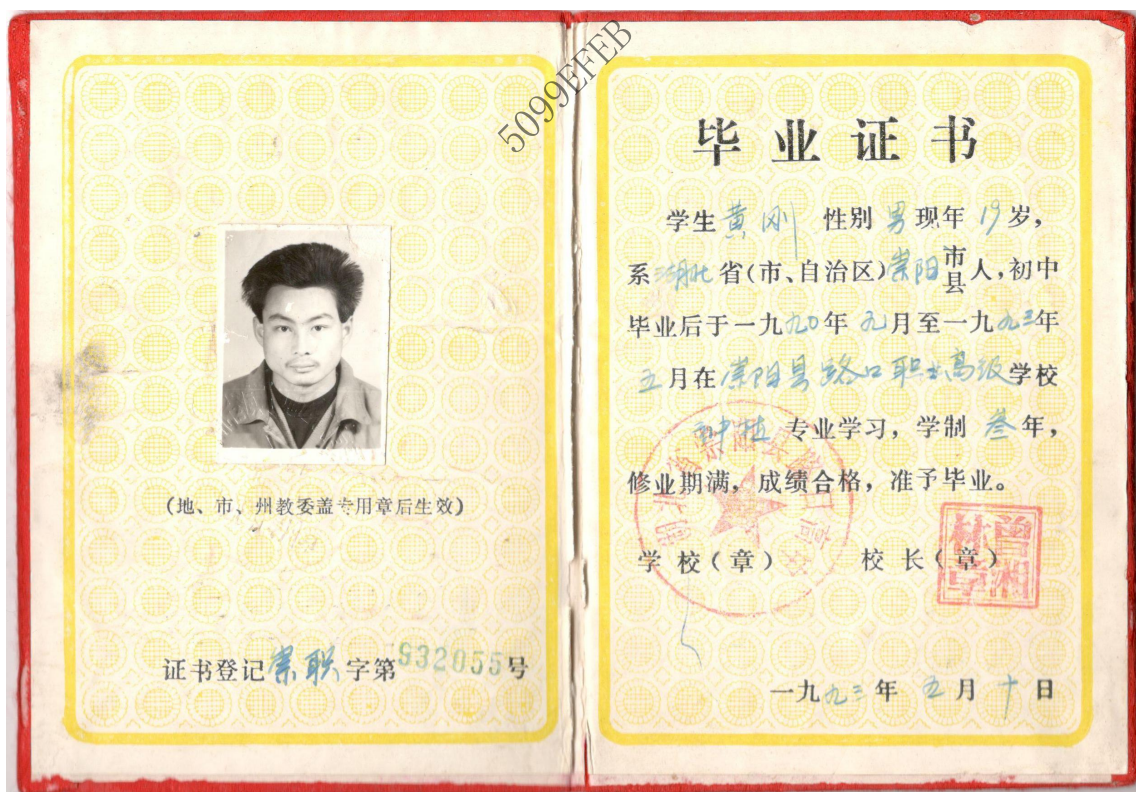 5099EFEB
(地、市、州教委盖专用章后生效)
证书登记崇职字第932055号
毕业证书
学生黄刚 性别男现年19岁,
系湖北省(市、自治区)崇阳市县人,初中
毕业后于一九九〇年九月至一九九三年
五月在崇阳县路口职业高级学校
种植专业学习,学制叁年,
修业期满,成绩合格,准予毕业。
学校(章) 校长(章)
曾湘林
一九九三年五月十日